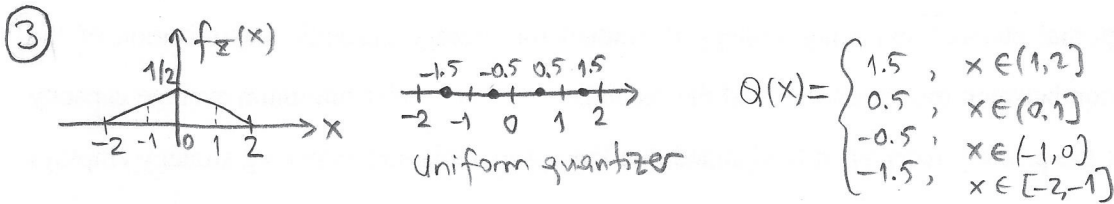 ③
f_X(x)
1/2
-2 -1 0 1 2 x
-1.5 -0.5 0.5 1.5
-2 -1 0 1 2
Uniform quantizer
Q(x)= { 1.5 , x ∈ (1,2]
0.5 , x ∈ (0,1]
-0.5 , x ∈ (-1,0]
-1.5 , x ∈ [-2,-1]